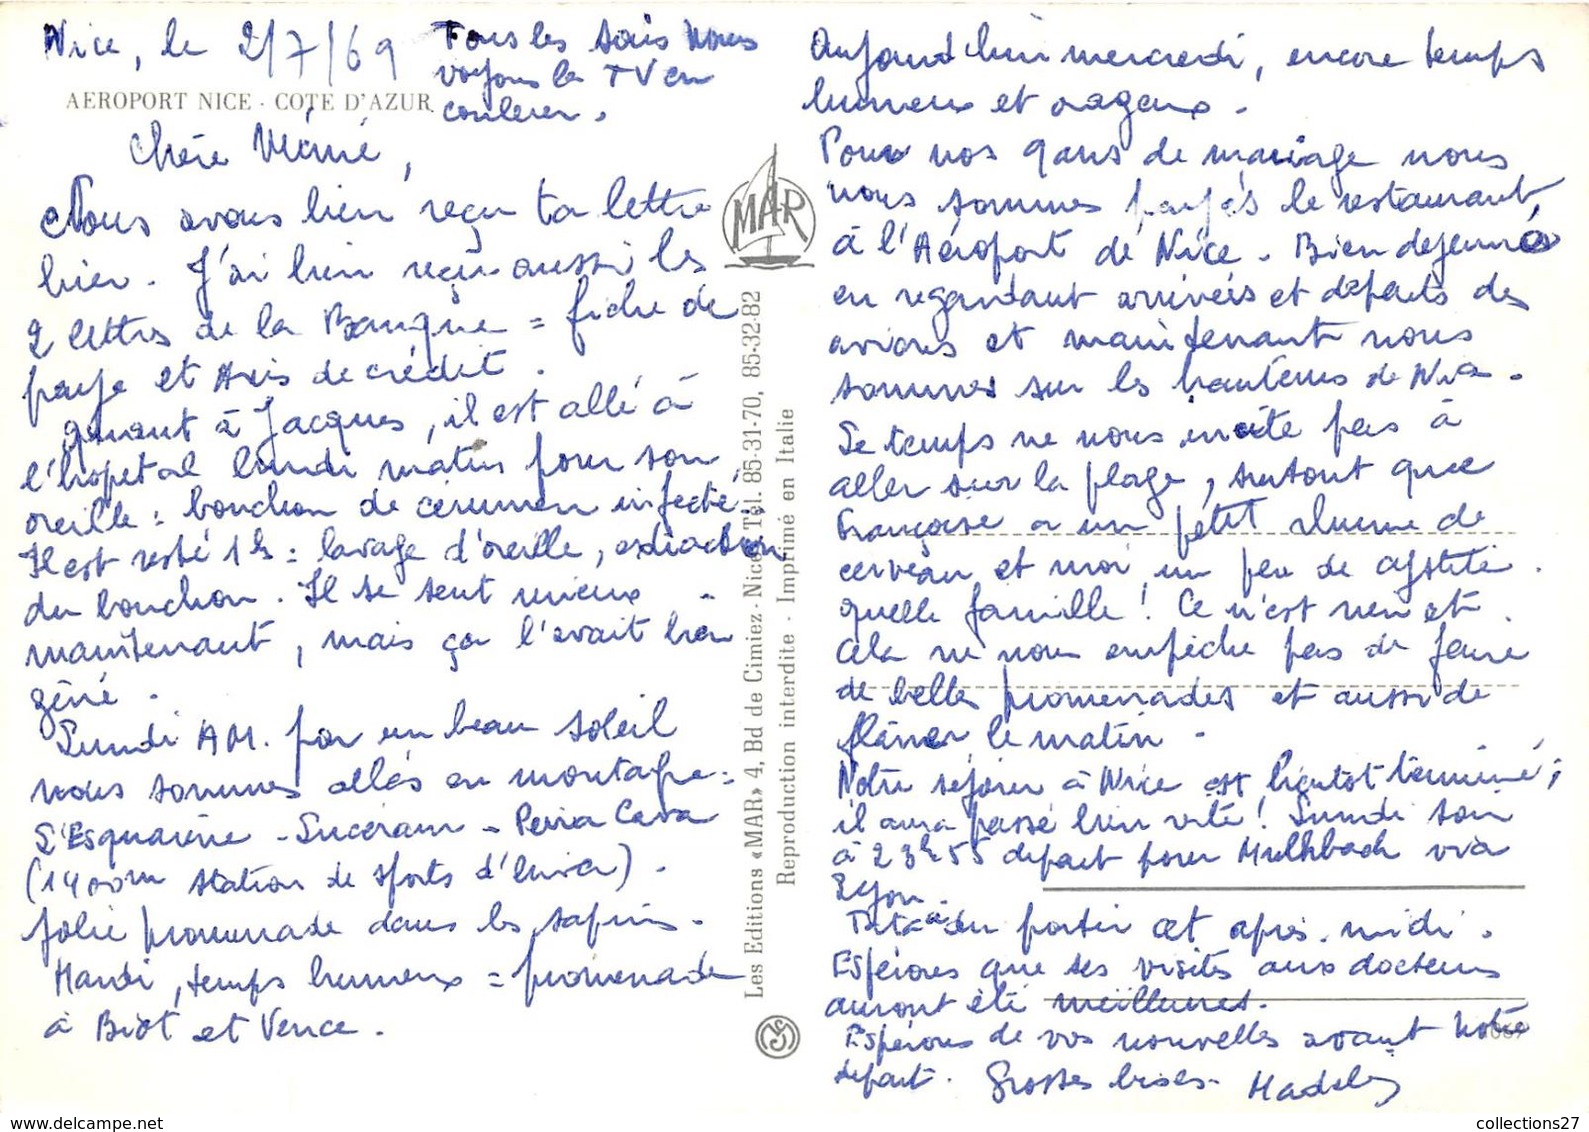 Nice, le 2/7/69
Tous les soirs nous
voyons la TV en
couleur.
AEROPORT NICE - COTE D'AZUR
Chère Mémé,
Nous avons bien reçu ta lettre
hier. J'ai bien reçu aussi les
2 lettres de la Banque = fiche de
paye et Avis de crédit.
Quant à Jacques, il est allé à
l'hopital lundi matin pour son
oreille : bouchon de cérumen infecté.
Il est resté 1h : lavage d'oreille, extraction
du bouchon. Il se sent mieux
maintenant, mais ça l'avait bien
gêné.
Lundi AM. par un beau soleil
nous sommes allés en montagne :
L'Escarène - Lucéram - Peira Cava
(1400m station de sports d'hiver).
Jolie promenade dans les sapins.
Mardi, temps brumeux = promenade
à Biot et Vence.
MAR
Les Editions «MAR» 4, Bd de Cimiez - Nice Tél. 85-31-70, 85-32-82
Reproduction interdite - Imprimé en Italie
Aujourd'hui mercredi, encore temps
brumeux et orageux.
Pour nos 9 ans de mariage nous
nous sommes payés le restaurant,
à l'Aéroport de Nice. Bien déjeuné
en regardant arrivées et départs des
avions et maintenant nous
sommes sur les hauteurs de Nice.
Le temps ne nous incite pas à
aller sur la plage, surtout que
Françoise a un petit rhume de
cerveau et moi un peu de cystite.
quelle famille ! Ce n'est rien et
cela ne nous empêche pas de faire
de belles promenades et aussi de
flâner le matin.
Notre séjour à Nice est bientôt terminé ;
il aura passé bien vite ! Lundi soir
à 23h55 départ pour Muhlbach via
Lyon.
Tu as dû partir cet après-midi.
Espérons que tes visites aux docteurs
auront été meilleures.
Espérons de vos nouvelles avant notre
départ. Grosses bises. Madely
collections27